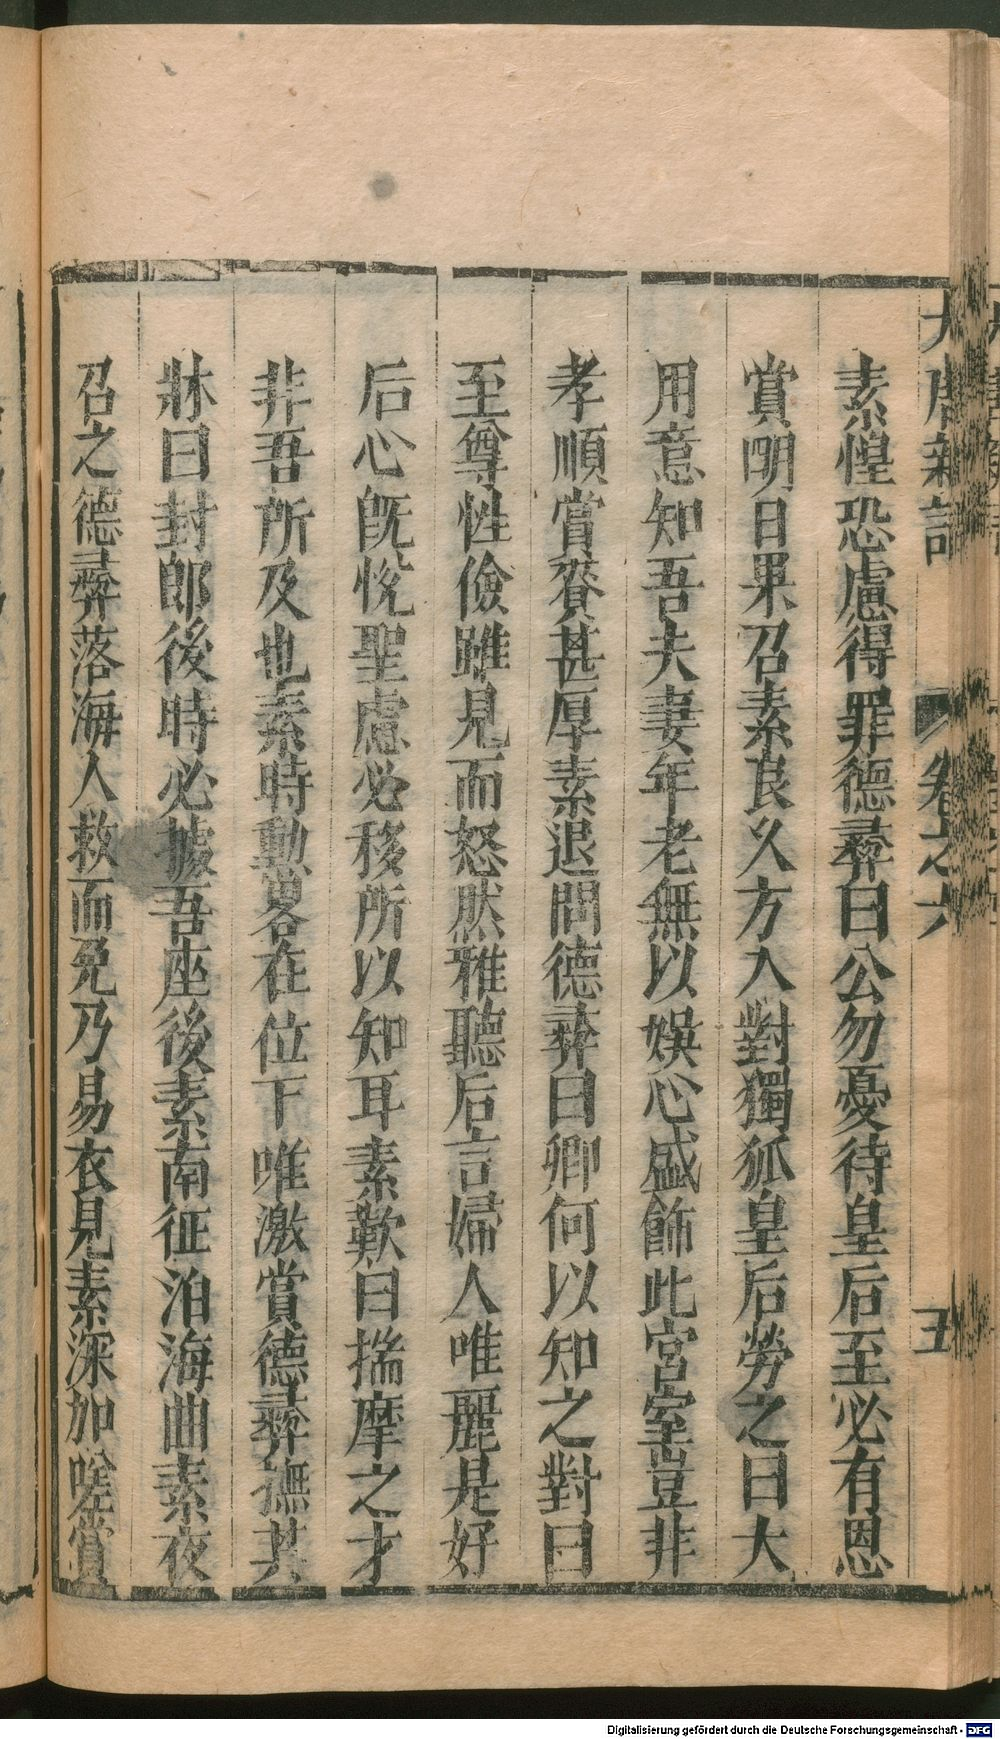 大唐新語 卷之六 五
素惶恐慮得罪德彝曰公勿憂待皇后至必有恩
賞明日果召素良久方入對獨狐皇后勞之曰大
用意知吾夫妻年老無以娛心盛飾此宮室豈非
孝順賞賚甚厚素退問德彝曰卿何以知之對曰
至尊性儉雖見而怒然雅聽后言婦人唯麗是好
后心旣悅聖慮必移所以知耳素歎曰揣摩之才
非吾所及也素時勳畧在位下唯激賞德彝撫其
牀曰封郎後時必據吾座後素南征泊海曲素夜
召之德彝落海人救而免乃易衣見素深加嗟賞
Digitalisierung gefördert durch die Deutsche Forschungsgemeinschaft - DFG